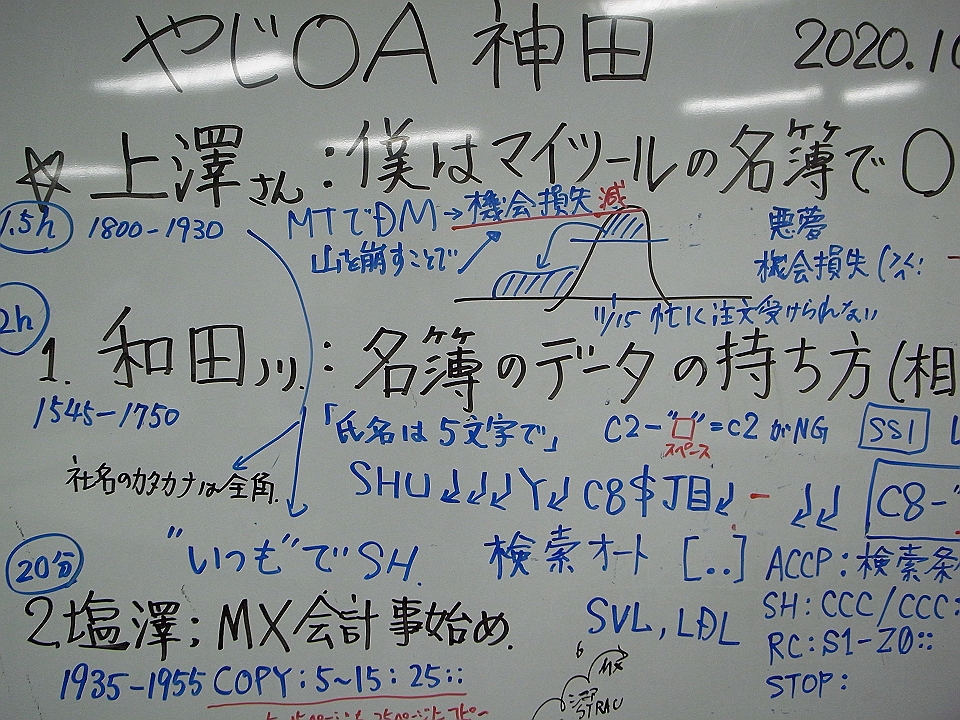 やじOA 神田 2020.10
☆ 上澤さん:僕はマイツールの名簿で
1.5h 1800-1930
MTでDM→機会損失減
山を崩すことで
悪夢
機会損失
11/15 忙しく注文受けられない
2h
1. 和田川:名簿のデータの持ち方(相
1545-1750
「氏名は5文字で」 C2-"口"=C2 がNG SS1
スペース
社名のカタカナは全角.
SHU↓↓↓Y↓ C8$J目↓ - ↓↓ C8-"
"いつも"でSH. 検索オート [..] ACCP:検索条
20分
2.塩澤; MX会計事始め.
SVL, LDL
SH:CCC/CCC:
RC:S1-Z0::
STOP:
1935-1955 COPY:5~15:25::
6 MX
シニア
STRAC